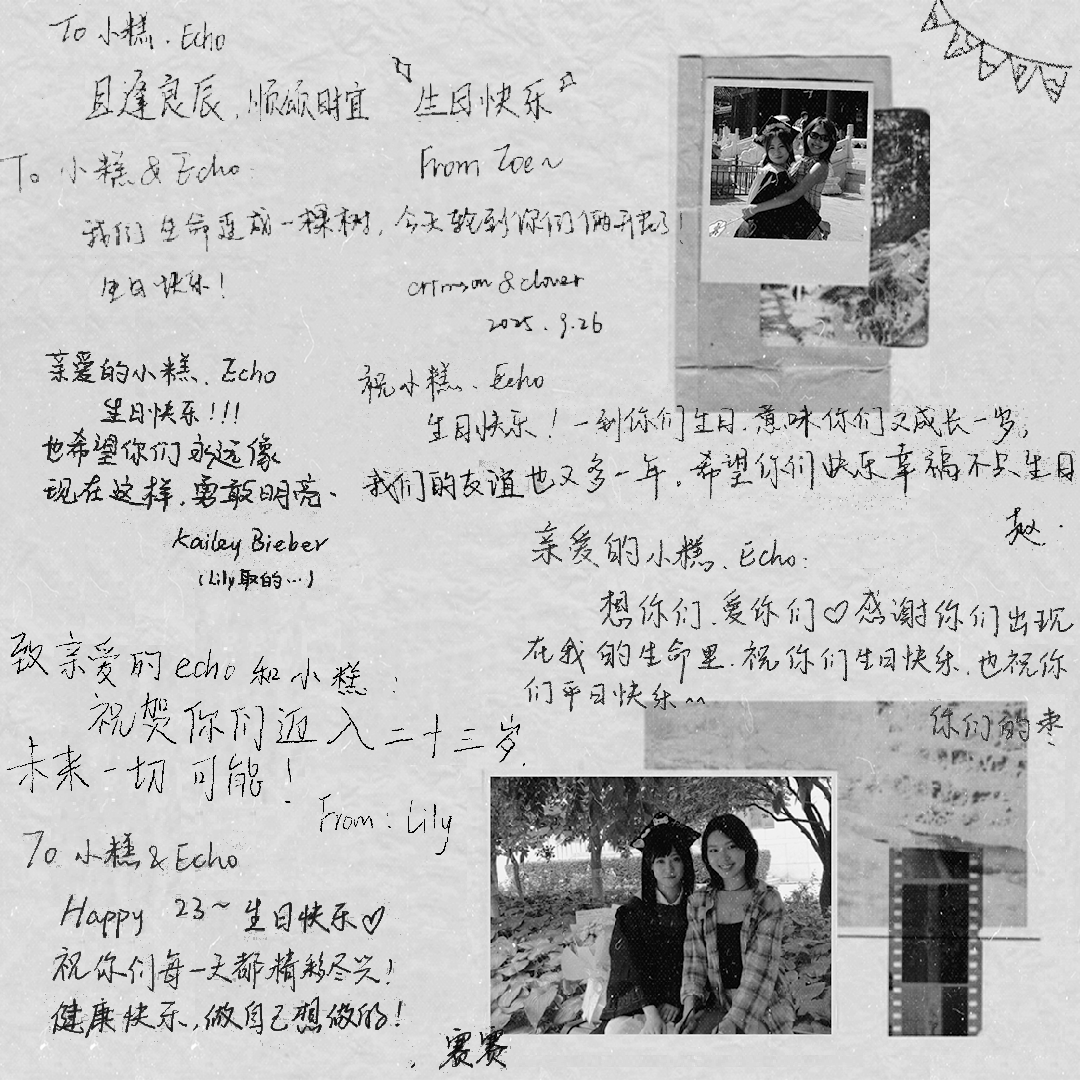 To 小糕、Echo
且逢良辰,顺颂时宜
生日快乐
From Zoe~
To 小糕 & Echo:
我们生命连成一棵树,今天轮到你们俩开花了!
生日快乐!
crimson & clover
2025.9.26
亲爱的小糕、Echo
生日快乐!!!
也希望你们永远像
现在这样,勇敢明亮。
Kailey Bieber
(Lily取的…)
祝小糕、Echo
生日快乐!一到你们生日,意味你们又成长一岁,
我们的友谊也又多一年。希望你们快乐幸福不只生日
赵.
亲爱的小糕、Echo:
想你们,爱你们♡感谢你们出现
在我的生命里,祝你们生日快乐,也祝你
们平日快乐~~
你们的枣
致亲爱的echo和小糕:
祝贺你们迈入二十三岁,
未来一切可能!
From:Lily
To 小糕 & Echo
Happy 23~生日快乐♡
祝你们每一天都精彩尽兴!
健康快乐,做自己想做的!
赛赛